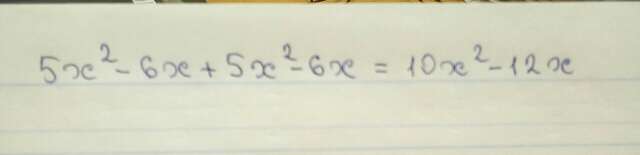 5x² - 6x + 5x² - 6x = 10x² - 12x